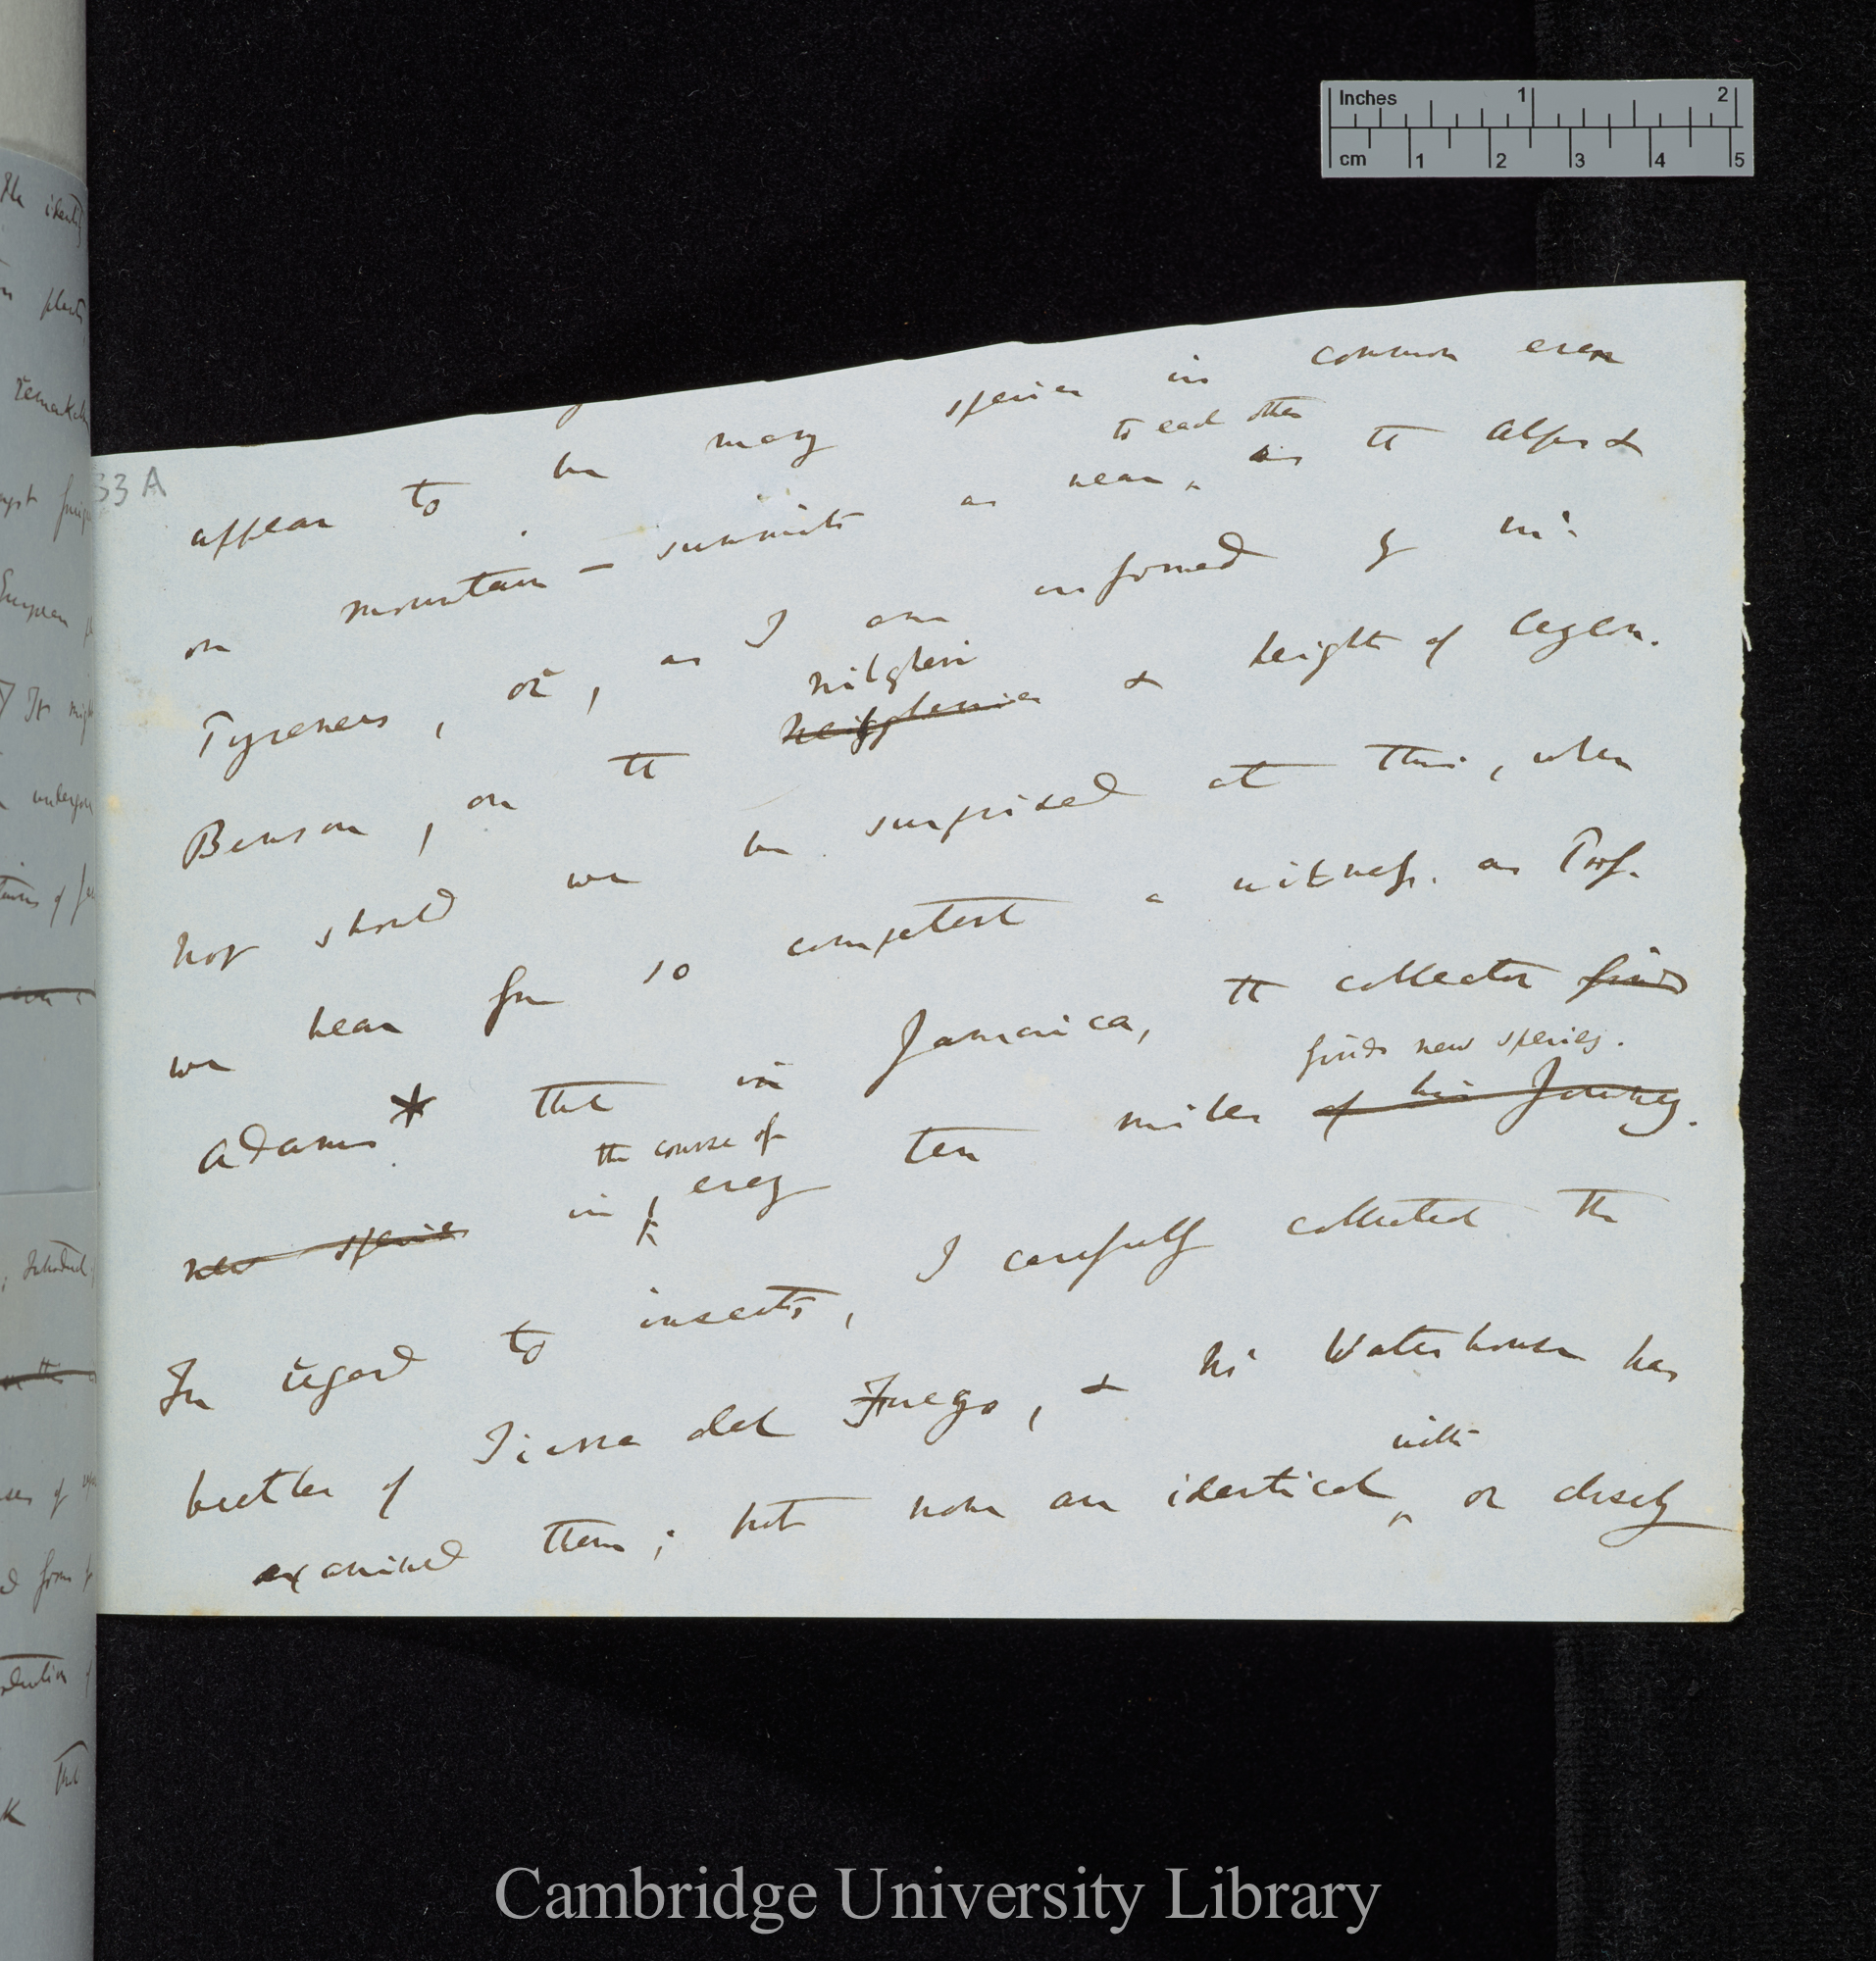 Inches 1 2
cm 1 2 3 4 5
33 A
appear to be many species in common even
to each other
on mountain-summits as near as the Alps &
Pyrenees, or, as I am informed by Mr
Nilgheri
Benson, on the neilgherries & height of Ceylon.
Nor should we be surprised at this, when
we hear from so competent a witness. as Prof.
Adams* that in Jamaica, the collector finds
the course of finds new species.
new species in every ten miles of his Journey.
In regard to insects, I carefully collected the
beetles of Tierra del Fuego, & Mr Waterhouse has
with
examined them; but none are identical or closely
Cambridge University Library